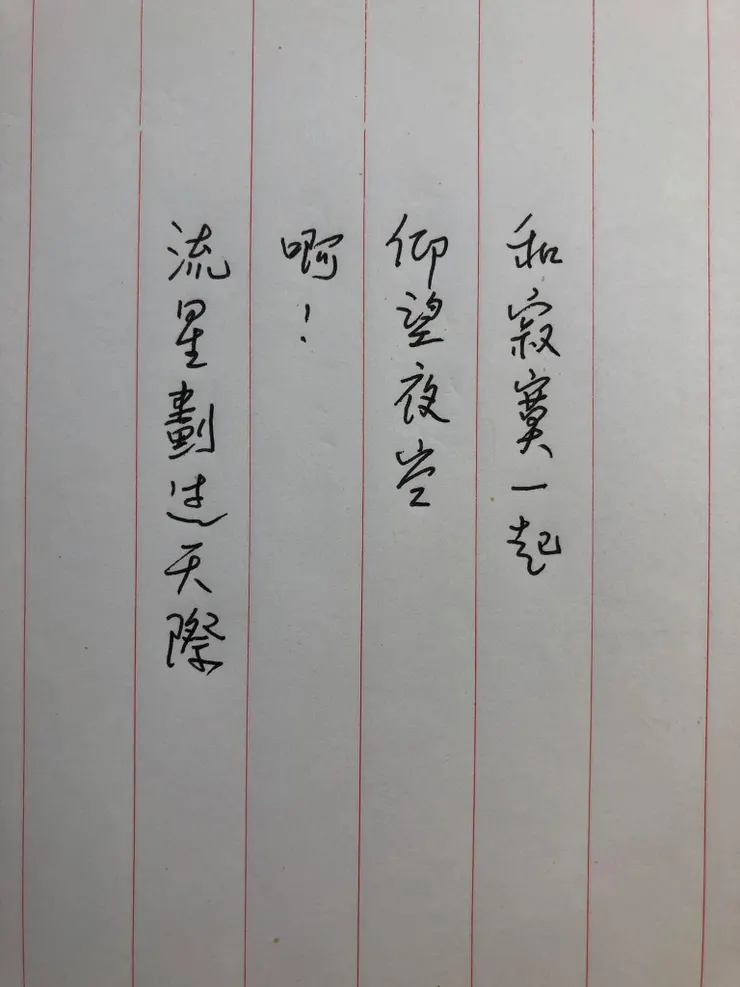 和寂寞一起
仰望夜空
啊！
流星劃过天際